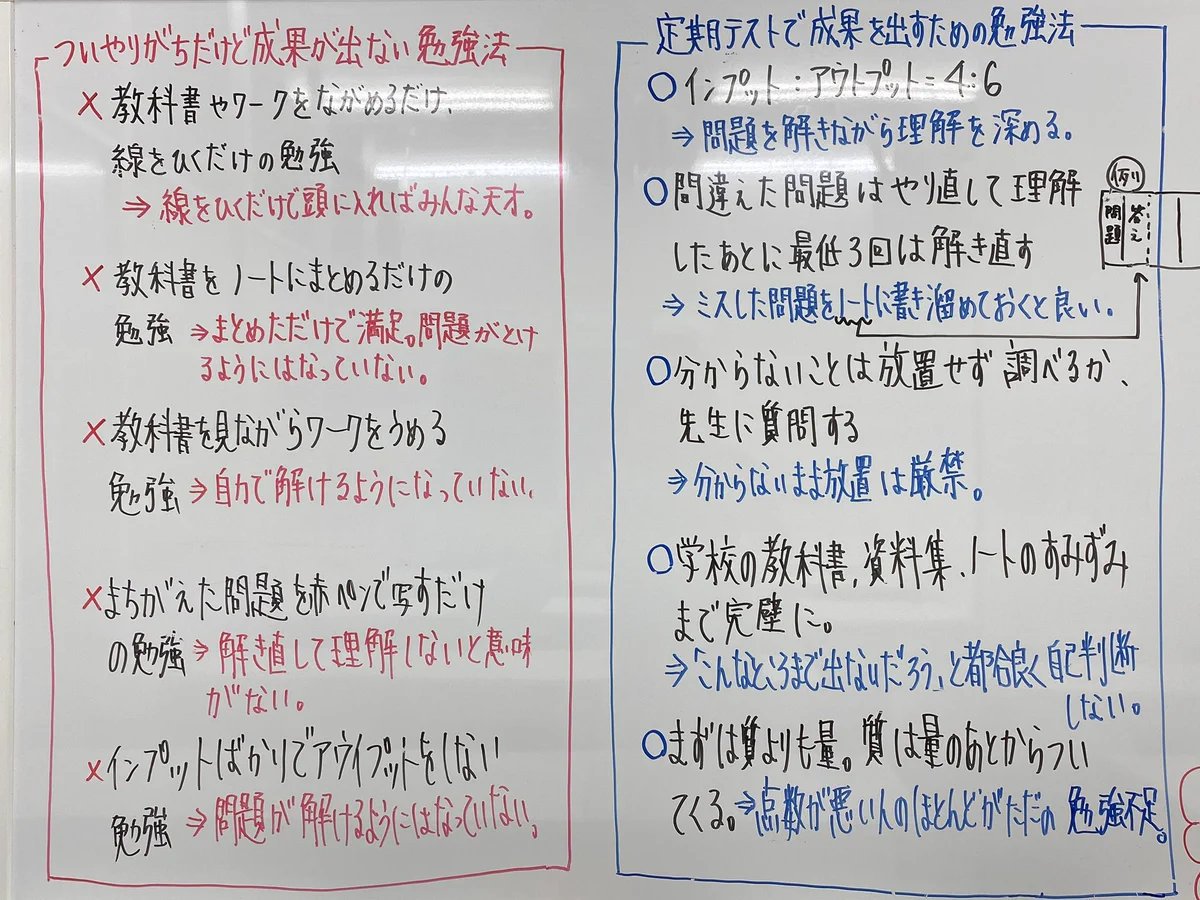 ついやりがちだけど成果が出ない勉強法
× 教科書やワークをながめるだけ、
線をひくだけの勉強
⇒ 線をひくだけで頭に入ればみんな天才。
× 教科書をノートにまとめるだけの
勉強 ⇒まとめただけで満足。問題がとけ
るようにはなっていない。
× 教科書を見ながらワークをうめる
勉強 ⇒自力で解けるようになっていない。
×まちがえた問題を赤ペンで写すだけ
の勉強 ⇒ 解き直して理解しないと意味
がない。
×インプットばかりでアウイプットをしない
勉強 ⇒ 問題が解けるようにはなっていない。
定期テストで成果を出すための勉強法
○インプット:アウトプット=4:6
⇒ 問題を解きながら理解を深める。
○間違えた問題はやり直して理解
したあとに最低3回は解き直す
⇒ ミスした問題をノートに書き溜めておくと良い。
例
問題
答え
○分からないことは放置せず調べるか、
先生に質問する
⇒分からないまま放置は厳禁。
○学校の教科書、資料集、ノートのすみずみ
まで完璧に。
⇒「こんなところまで出ないだろう」と都合良く自己判断
しない。
○まずは質よりも量。質は量のあとからつい
てくる。⇒点数が悪い人のほとんどがただの勉強不足。